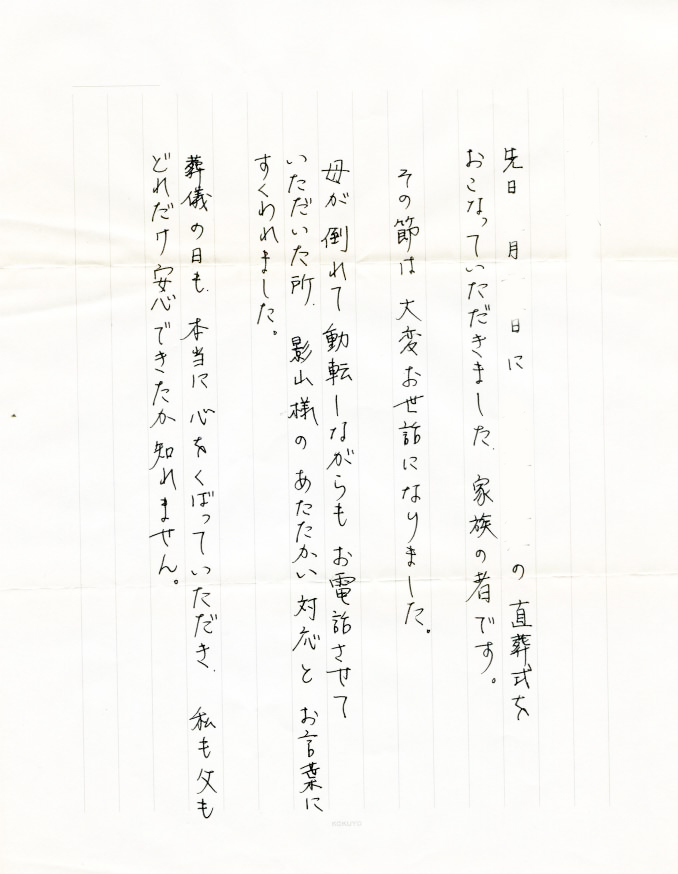 先日 月 日に の直葬式を
おこなっていただきました、家族の者です。
その節は大変お世話になりました。
母が倒れて動転しながらもお電話させて
いただいた所、影山様のあたたかい対応とお言葉に
すくわれました。
葬儀の日も、本当に心をくばっていただき、私も父も
どれだけ安心できたか知れません。
KOKUYO